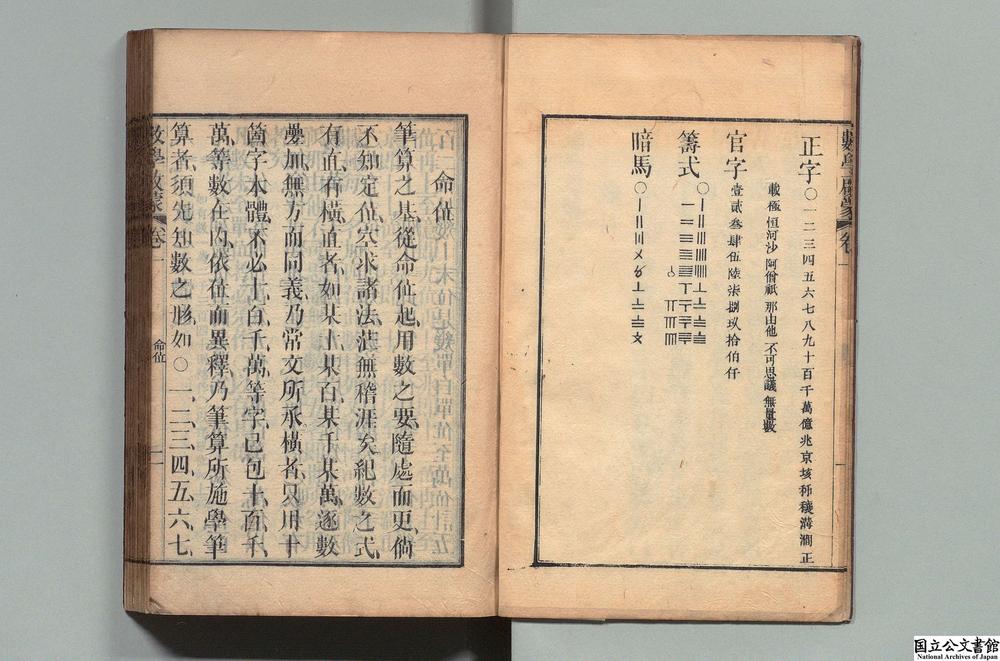 正字〇一二三四五六七八九十百千萬億兆京垓秭穰溝澗正
載極恒河沙阿僧祇那由他不可思議無量數
官字壹貳叁肆伍陸柒捌玖拾伯仟
籌式〇
暗馬〇〡〢〣〤〥〦〧〨〩
命位
筆算之基從命位起用數之要隨處而更倘
不知定位空求諸法茫無稽涯矣紀數之式
有直有橫直者如某十某百某千某萬逐數
疊加無方而同義乃常文所承橫者只用十
箇字本體不必十百千萬等字已包十百千
萬等數在內依位而異釋乃筆算所施學筆
算者須先知數之形如〇一二三四五六七
數學啟蒙 卷一
命位
一
国立公文書館
National Archives of Japan